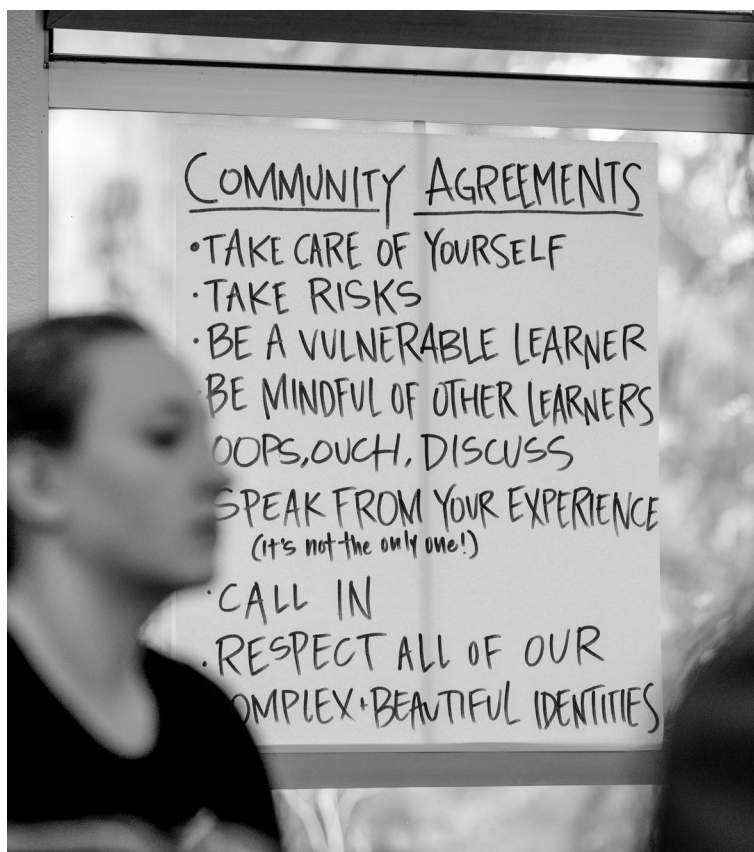 COMMUNITY AGREEMENTS
• TAKE CARE OF YOURSELF
• TAKE RISKS
• BE A VULNERABLE LEARNER
• BE MINDFUL OF OTHER LEARNERS
OOPS, OUCH, DISCUSS
SPEAK FROM YOUR EXPERIENCE
(it's not the only one!)
• CALL IN
• RESPECT ALL OF OUR
OMPLEX + BEAUTIFUL IDENTITIES